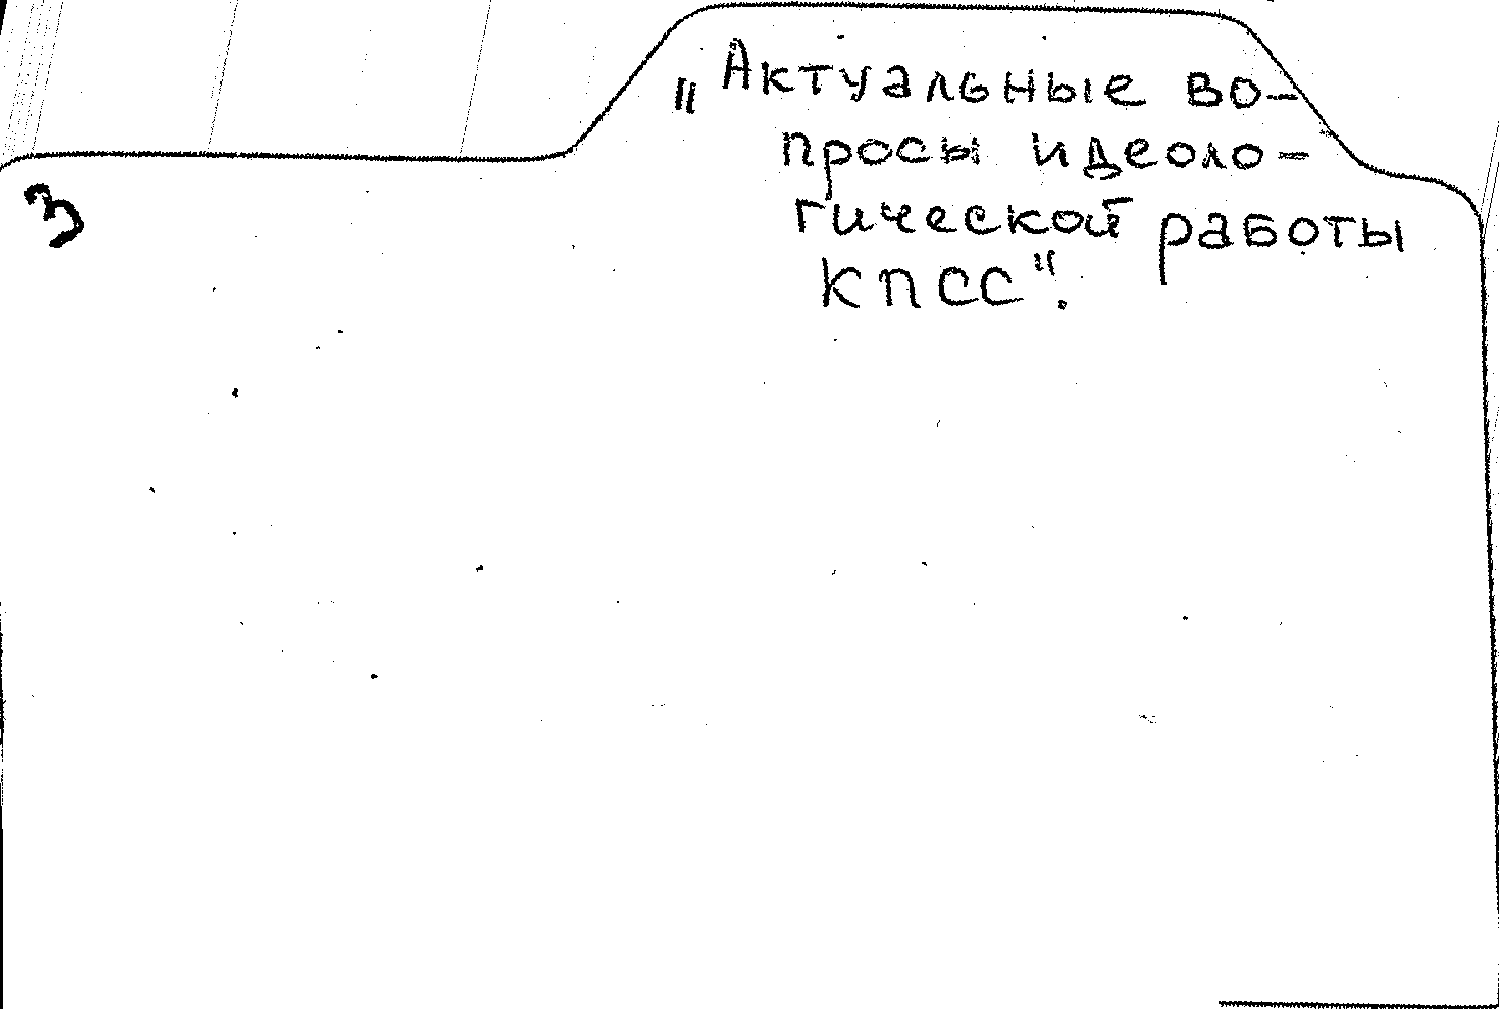 "Актуальные во-
просы идеоло-
гической работы
КПСС".
3